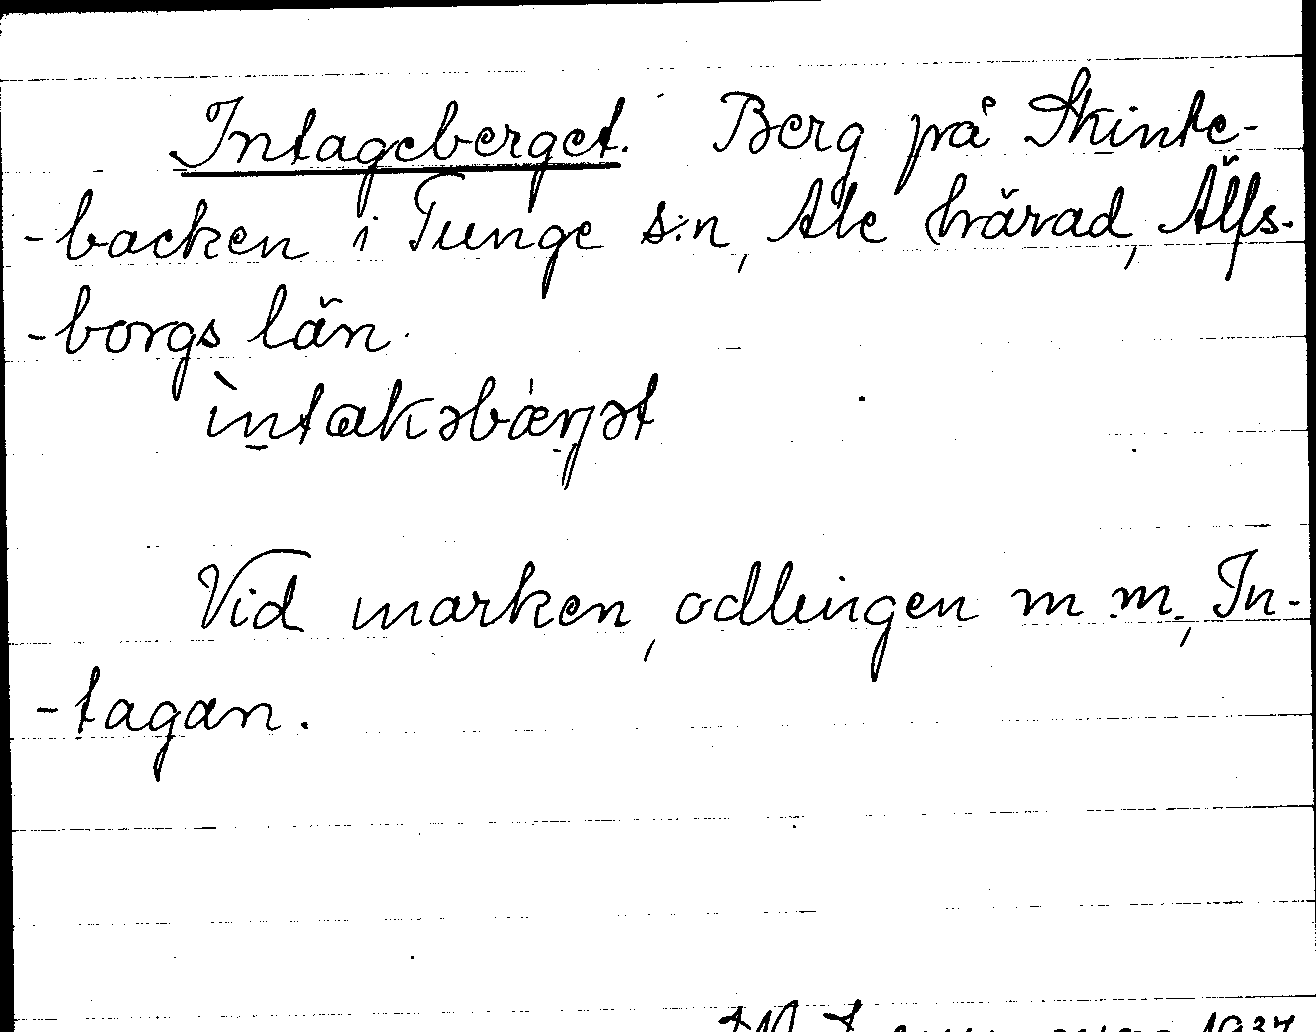 Intageberget. Berg på Skinte-
-backen i Tunge s:n, Ale härad, Älfs-
-borgs län.
ìntakəbæ̀rjət
Vid marken, odlingen m. m., In-
-tagan.
1937